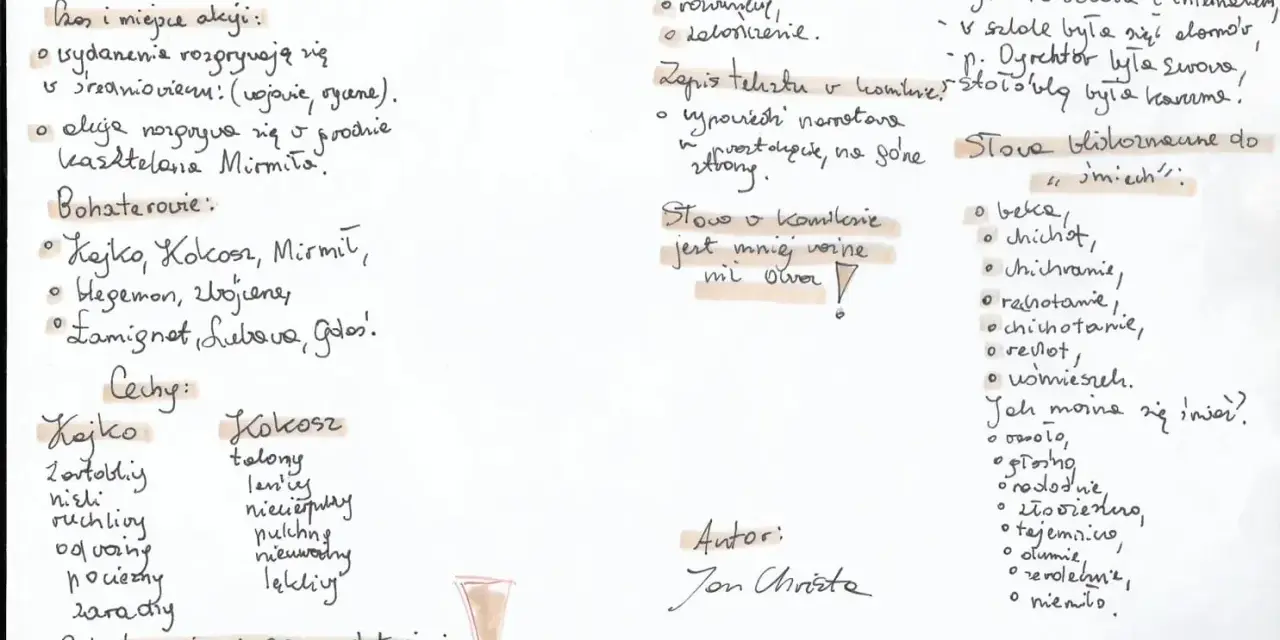 Czas i miejsce akcji:
wydarzenia rozgrywają się
w średniowieczu: (wojowie, rycerze).
akcja rozgrywa się w grodzie
kasztelana Mirmiła.
Bohaterowie:
Kajko, Kokosz, Mirmił,
Hegemon, zbójcerze,
Łamignat, Lubawa, Gdaś.
Cechy:
Kajko
żartobliwy
niski
ruchliwy
odważny
pocieszny
zaradny
Kokosz
leniwy
niecierpliwy
pulchny
nieuważny
lękliwy
zakończenie.
Zapis tekstu w komiksie:
wypowiedź narratora
w prostokącie, na górze
strony.
Słowo w komiksie
jest mniej ważne
niż obraz!
Autor:
Jan Christa
- w szkole była sieć domów,
- p. Dyrektor była surowa,
- stołówką była karczma.
Słowa bliskoznaczne do
"śmiech":
beka,
chichot,
chichranie,
rechotanie,
chichotanie,
rechot,
uśmieszek.
Jak można się śmiać?
wesoło,
głośno,
radośnie,
złowieszczo,
tajemniczo,
dumnie,
serdecznie,
niemiło.